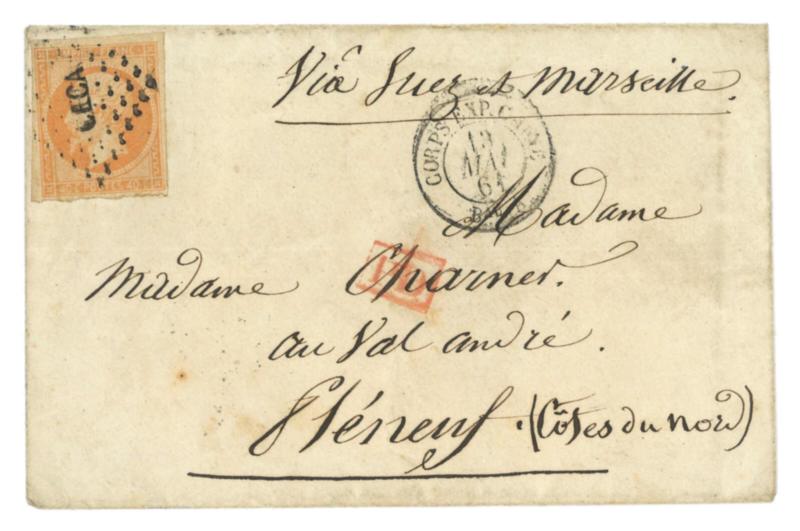 CECA
40 c. POSTES 40 c.
Via Suez et Marseille.
CORPS EXP. CHINE
13
MAI
61
Madame
Madame Charner.
au Val andré.
Pléneuf. (Côtes du Nord)